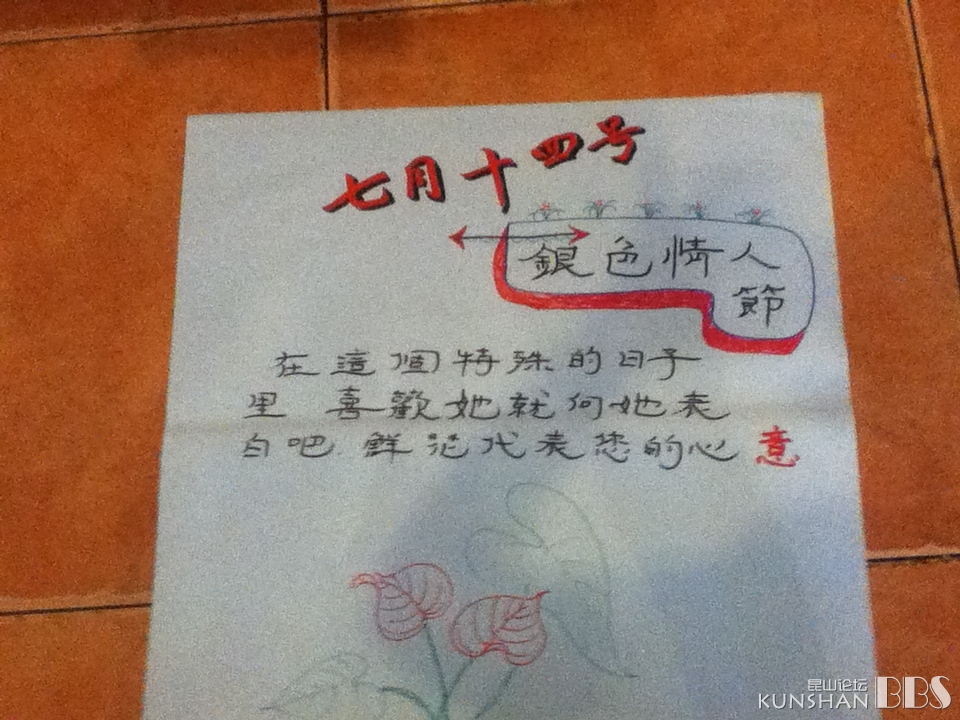 七月十四号
銀色情人
節
在這個特殊的日子
里 喜歡她就向她表
白吧 鮮花代表您的心意
昆山论坛
KUNSHAN BBS